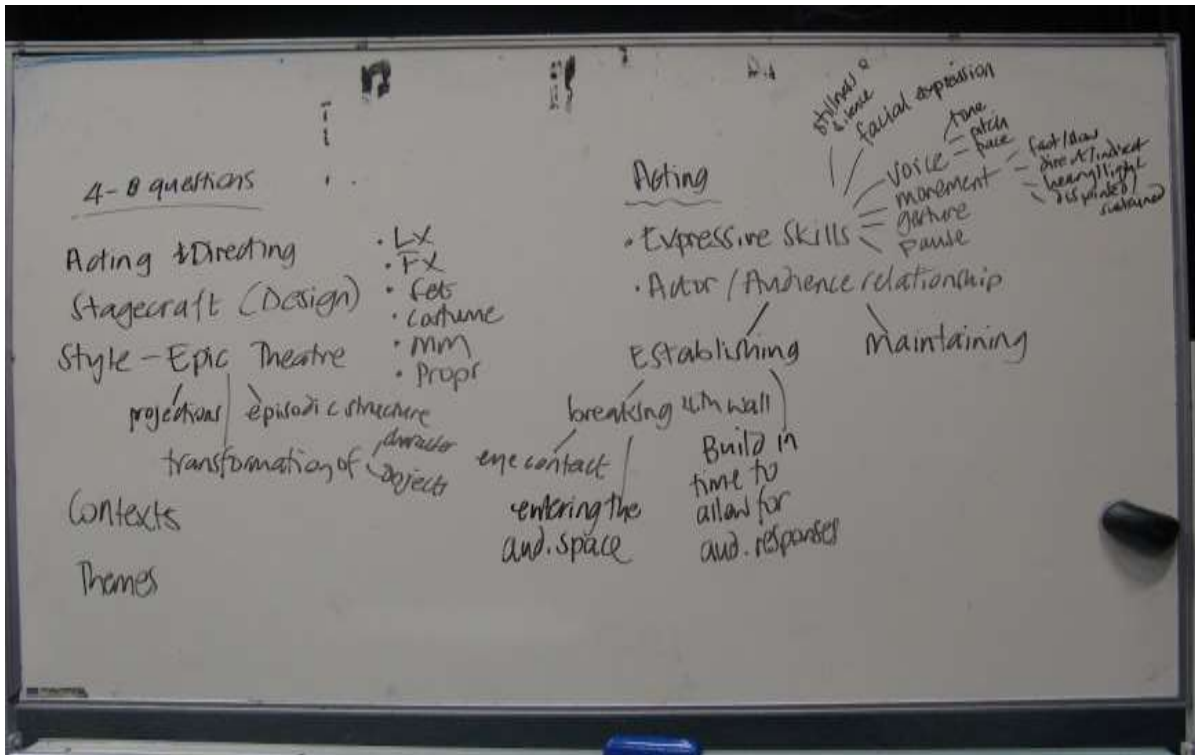 4-8 questions
Acting & Directing
Stagecraft (Design)
• LX
• FX
• Sets
• Costume
• MM
• Props
Style - Epic Theatre
projections
episodic structure
transformation of
character
objects
Contexts
Themes
Acting
• Expressive Skills
stillness &
silence
facial expression
voice
tone
pitch
pace
movement
fast/slow
direct/indirect
heavy/light
sustained
gesture
pause
• Actor / Audience relationship
Establishing
Maintaining
breaking 4th wall
eye contact
entering the
aud. space
Build in
time to
allow for
aud. responses